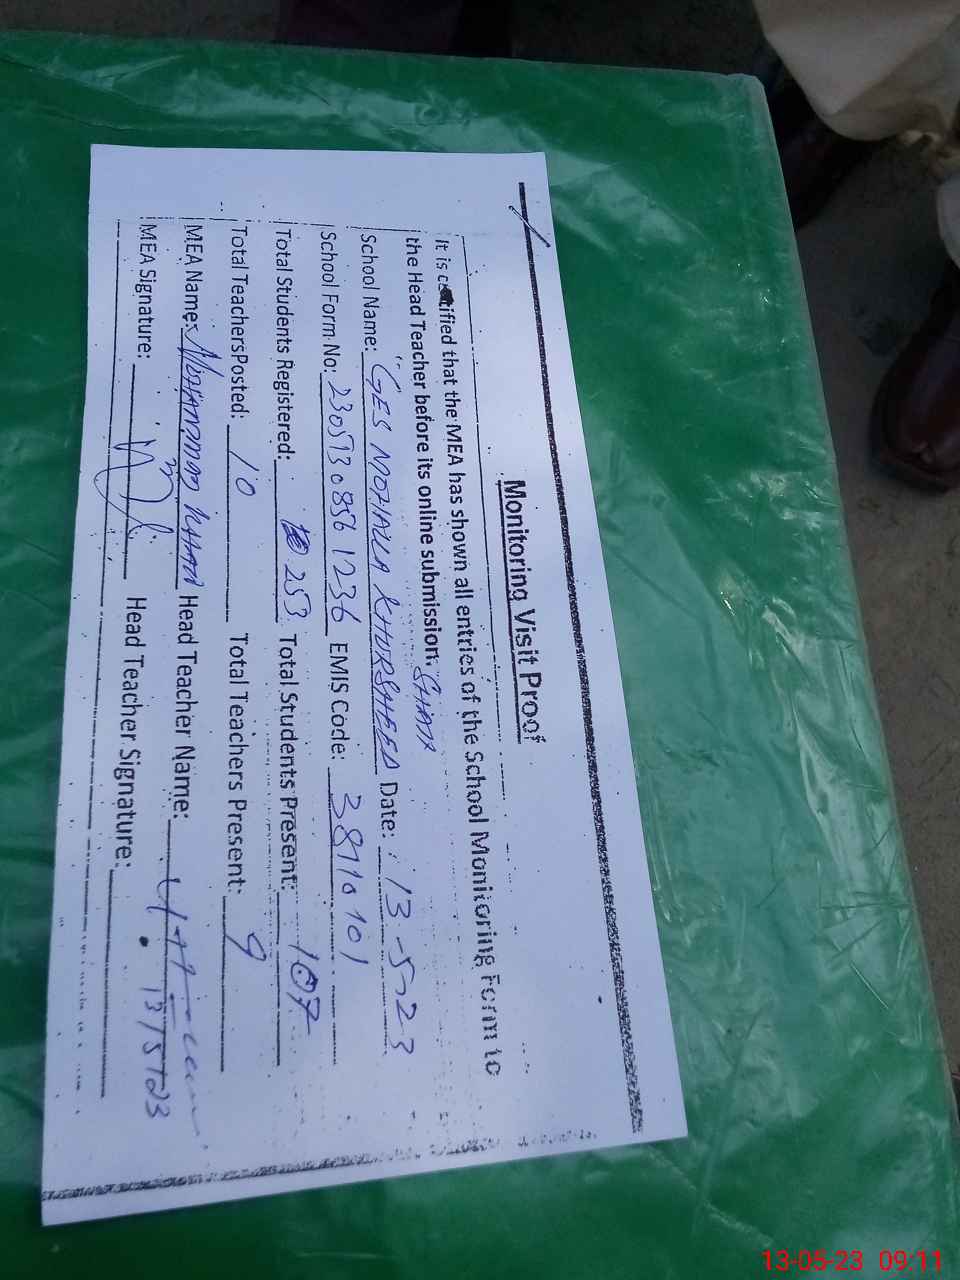 Monitoring Visit Proof
It is certified that the MEA has shown all entries of the School Monitoring Form to
the Head Teacher before its online submission.
School Name: GES MOHALLA KHURSHEED SHAH Date: 13-5-23
School Form No: 23051308561236 EMIS Code: 38110101
Total Students Registered: 253 Total Students Present: 107
Total Teachers Posted: 10 Total Teachers Present: 9
MEA Name: MOHAMMAD KHAN Head Teacher Name:
MEA Signature: Head Teacher Signature: 13/5/23
13-05-23 09:11